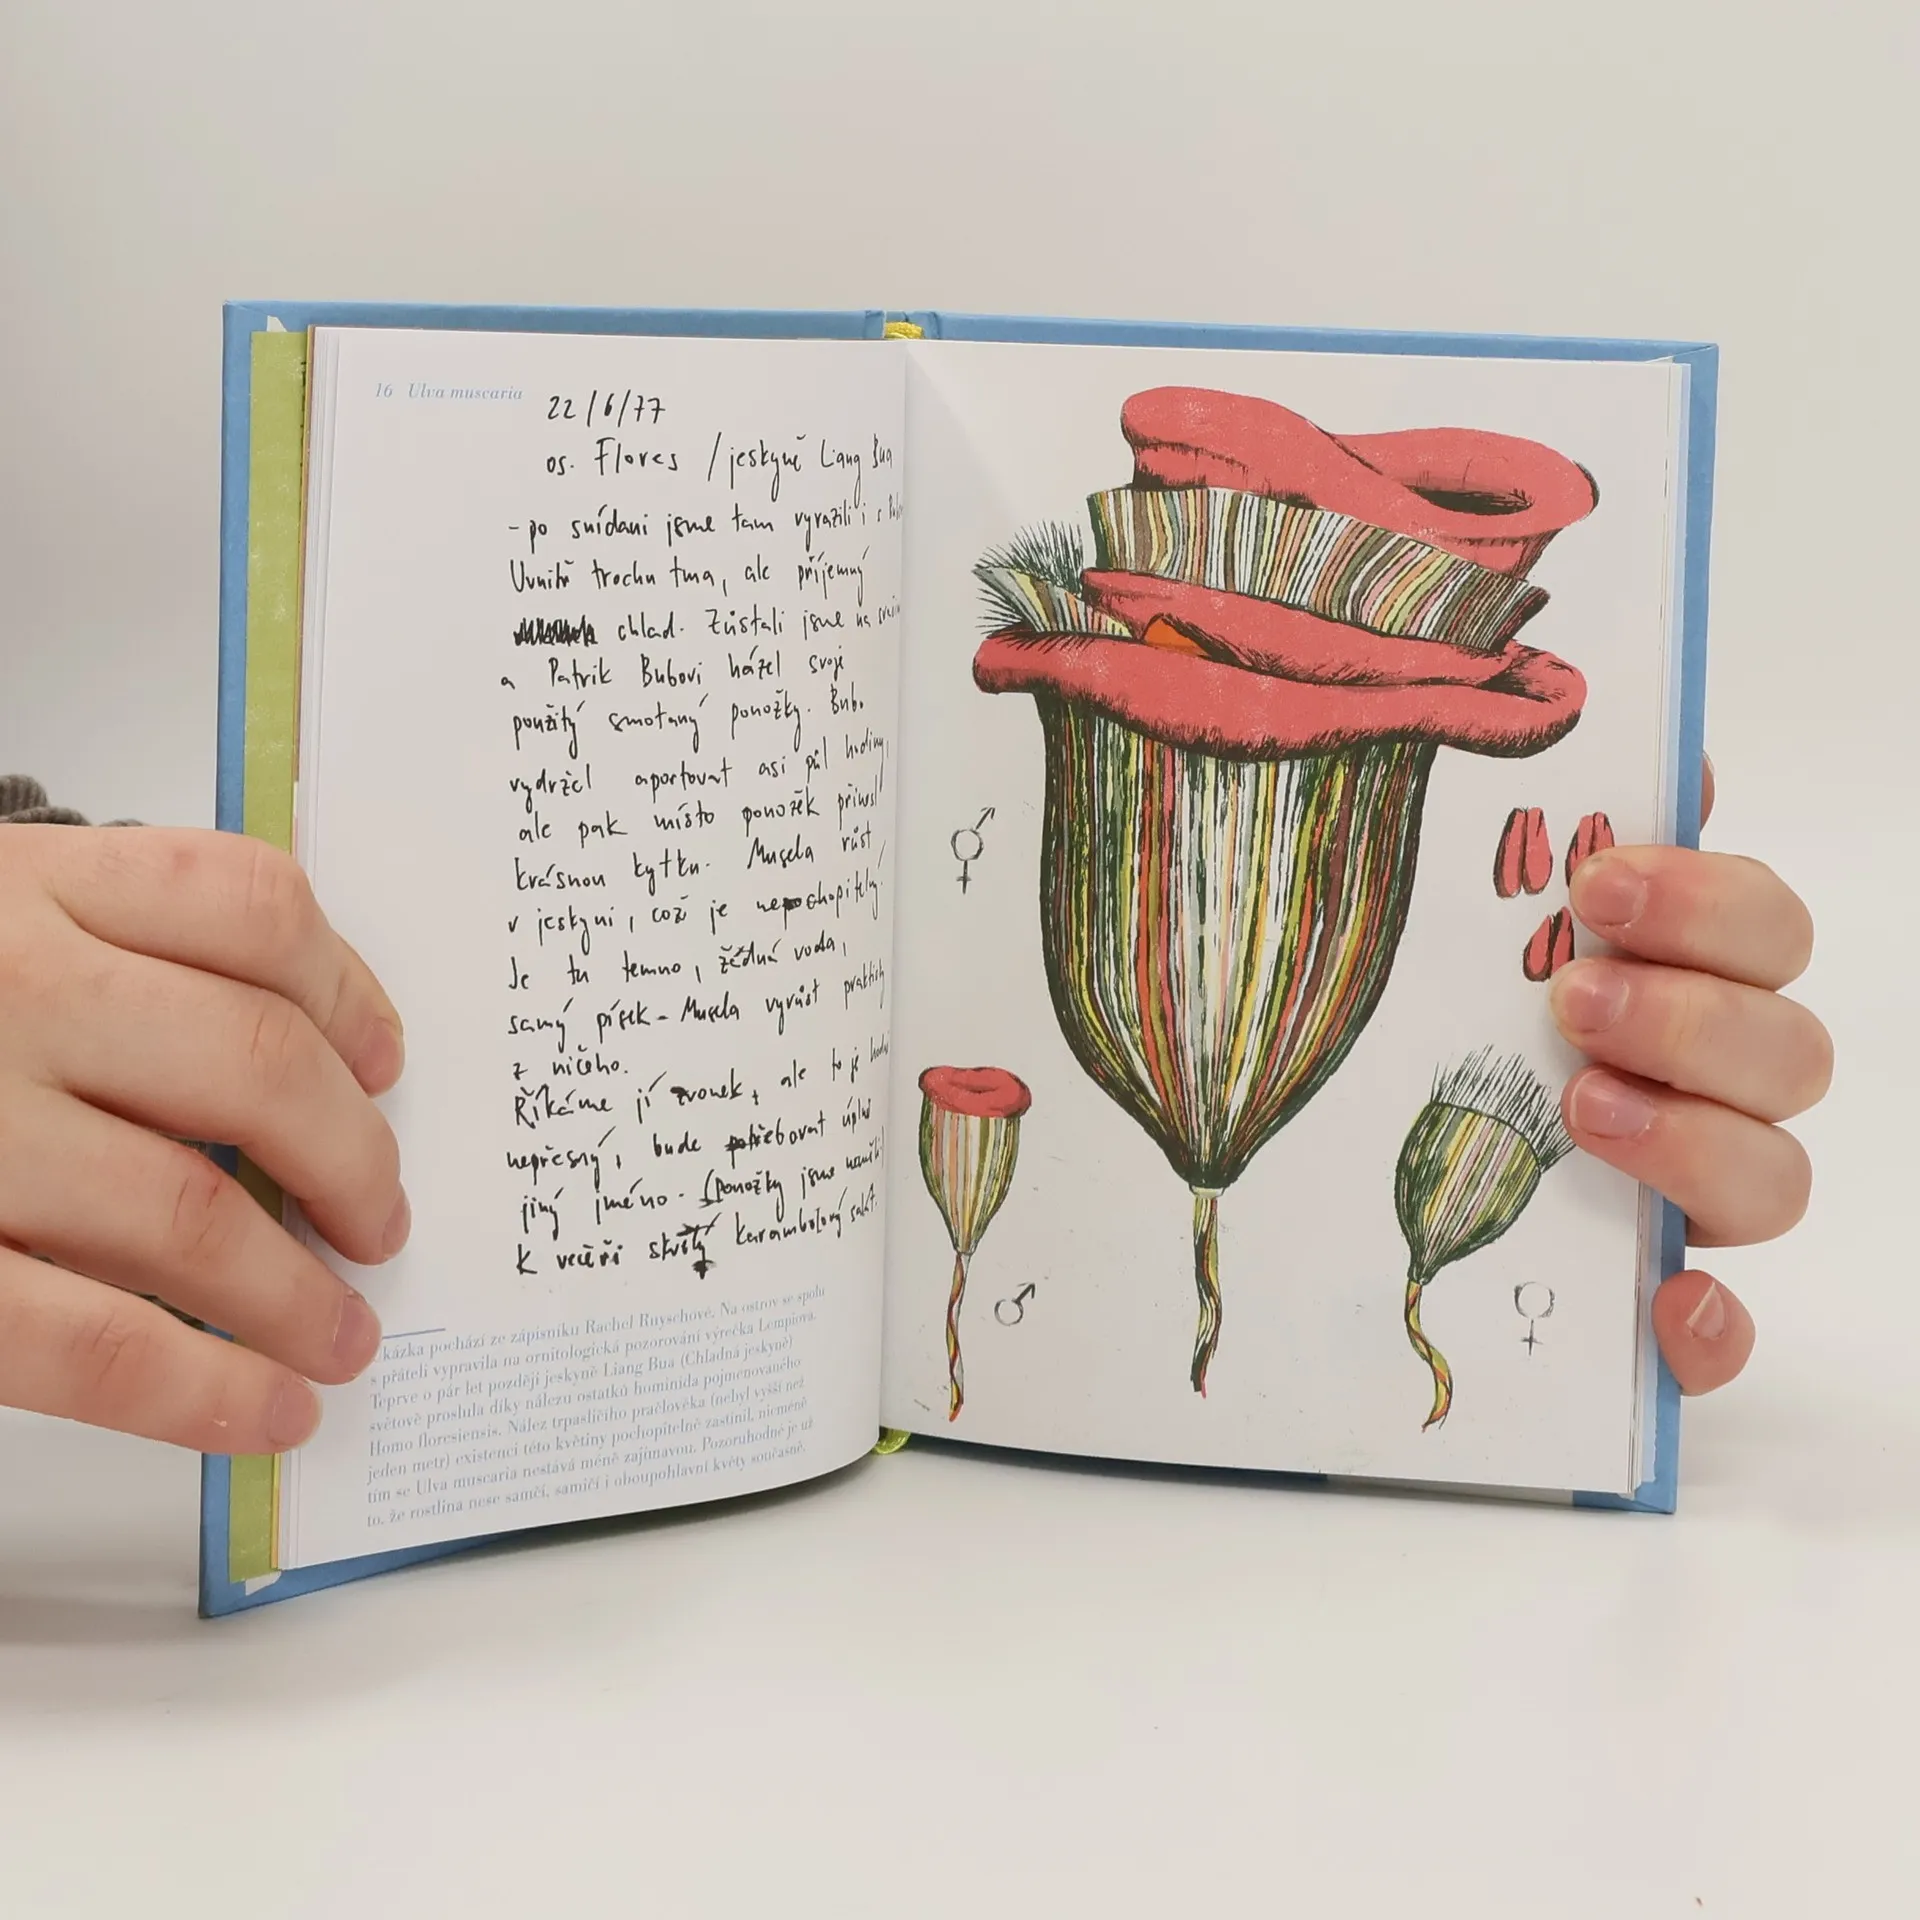 16 Ulva muscaria
22/6/77
os. Flores / jeskyně Liang Bua
- po snídani jsme tam vyrazili i s
Uvnitř trochu tma, ale příjemný
chlad. Zůstali jsme na
a Patrik Bubovi házel svoje
použitý smotaný ponožky. Bubo
vydržel aportovat asi půl hodiny,
ale pak místo ponožek přinesl
krásnou kytku. Musela růst
v jeskyni, což je nepochopitelný.
Je tu temno, žádná voda,
samý písek - Musela vyrůst prakticky
z ničeho.
Říkáme jí zvonek, ale to je hodně
nepřesný, bude potřebovat úplně
jiný jméno. (Ponožky jsme nenašli)
K večeři skvělý karambolový salát.
Ukázka pochází ze zápisníku Rachel Ruyschové. Na ostrov se spolu
s přáteli vypravila na ornitologická pozorování výrečka Lempiova.
Teprve o pár let později jeskyně Liang Bua (Chladná jeskyně)
světově proslula díky nálezu ostatků hominida pojmenovaného
Homo floresiensis. Nález trpasličího pračlověka (nebyl vyšší než
jeden metr) existenci této květiny pochopitelně zastínil, nicméně
tím se Ulva muscaria nestává méně zajímavou. Pozoruhodné je už
to, že rostlina nese samčí, samičí i oboupohlavní květy současně.